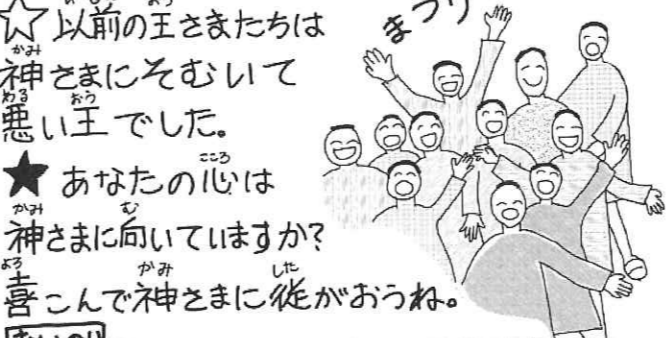 ☆以前の王さまたちは
神さまにそむいて
悪い王でした。
★あなたの心は
神さまに向いていますか?
喜こんで神さまに従がおうね。
まつり